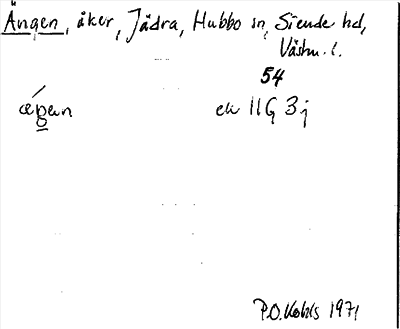 Ängen, åker, Jädra, Hubbo sn, Siende hd,
Västm. l.
54
ek 11G 3j
P.O. Kohls 1971